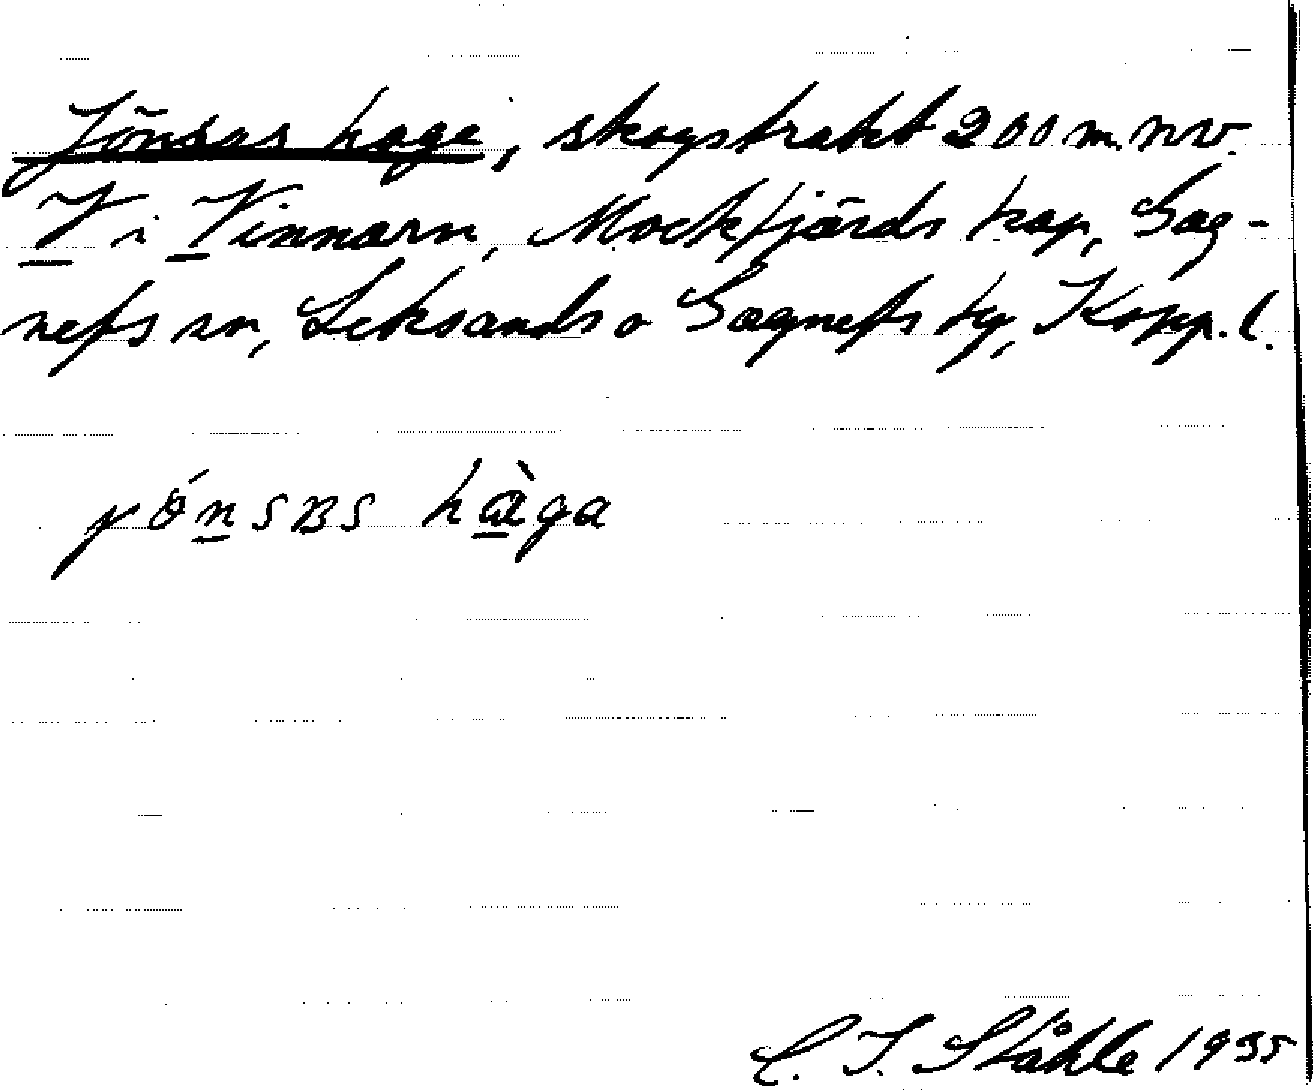 Jönsas hage, skogstrakt 200 m. nv.
V i Vinnarn, Mockfjärds kap, Gag-
nefs sn, Leksands o Gagnefs tg, Kopp. l.
hàga
C. I. Ståhle 1935